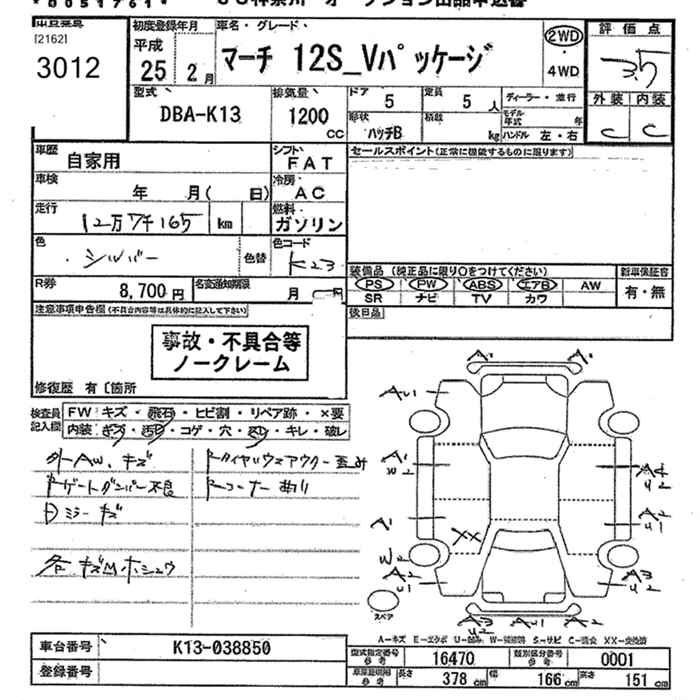 [2162]
3012
初度登録年月
平成
25年 2月
車名・グレード
マーチ 12S_Vパッケージ
2WD
・
4WD
評価点
3.5
外装 内装
C C
型式
DBA-K13
排気量
1200
CC
ドア
5
定員
5人
ディーラー・並行
形状
ハッチB
積載
kg
モデル年式
年
ハンドル 左・右
車歴
自家用
シフト
FAT
セールスポイント(正常に機能するものに限ります)
車検
年 月( 日)
冷房
AC
走行
12万7千165 km
燃料
ガソリン
色
シルバー
色替
色コード
K23
装備品(純正品に限り○をつけてください)
新車保証書
PS PW ABS エアB AW
SR ナビ TV カワ
有・無
R券
8,700円
名変通知期限
月
後日品
注意事項申告欄(不具合内容等は具体的に記入して下さい)
事故・不具合等
ノークレーム
修復歴 有〔箇所
検査員
記入欄
FW キズ・飛石・ヒビ割・リペア跡・×要
内装 キズ・汚れ・コゲ・穴・スレ・キレ・破レ
外AW、キズ
トゲートダンパー不良
Dミラーキズ
各キズUホシュウ
トコーナー曲り
A1 A1
AU1
A1
U2
A4
U2
A1
A2
U1
XX
W2
A2
U1
A3
U2
スペア
A3
U2
AU1
A2
A-キズ E-エクボ U-凹み W-補修跡 S-サビ C-腐食 XX-交換済
車台番号
K13-038850
登録番号
型式指定番号
参考
16470
類別区分番号
参考
0001
車庫証明用
参考
長さ
378 cm
幅
166 cm
高さ
151 cm